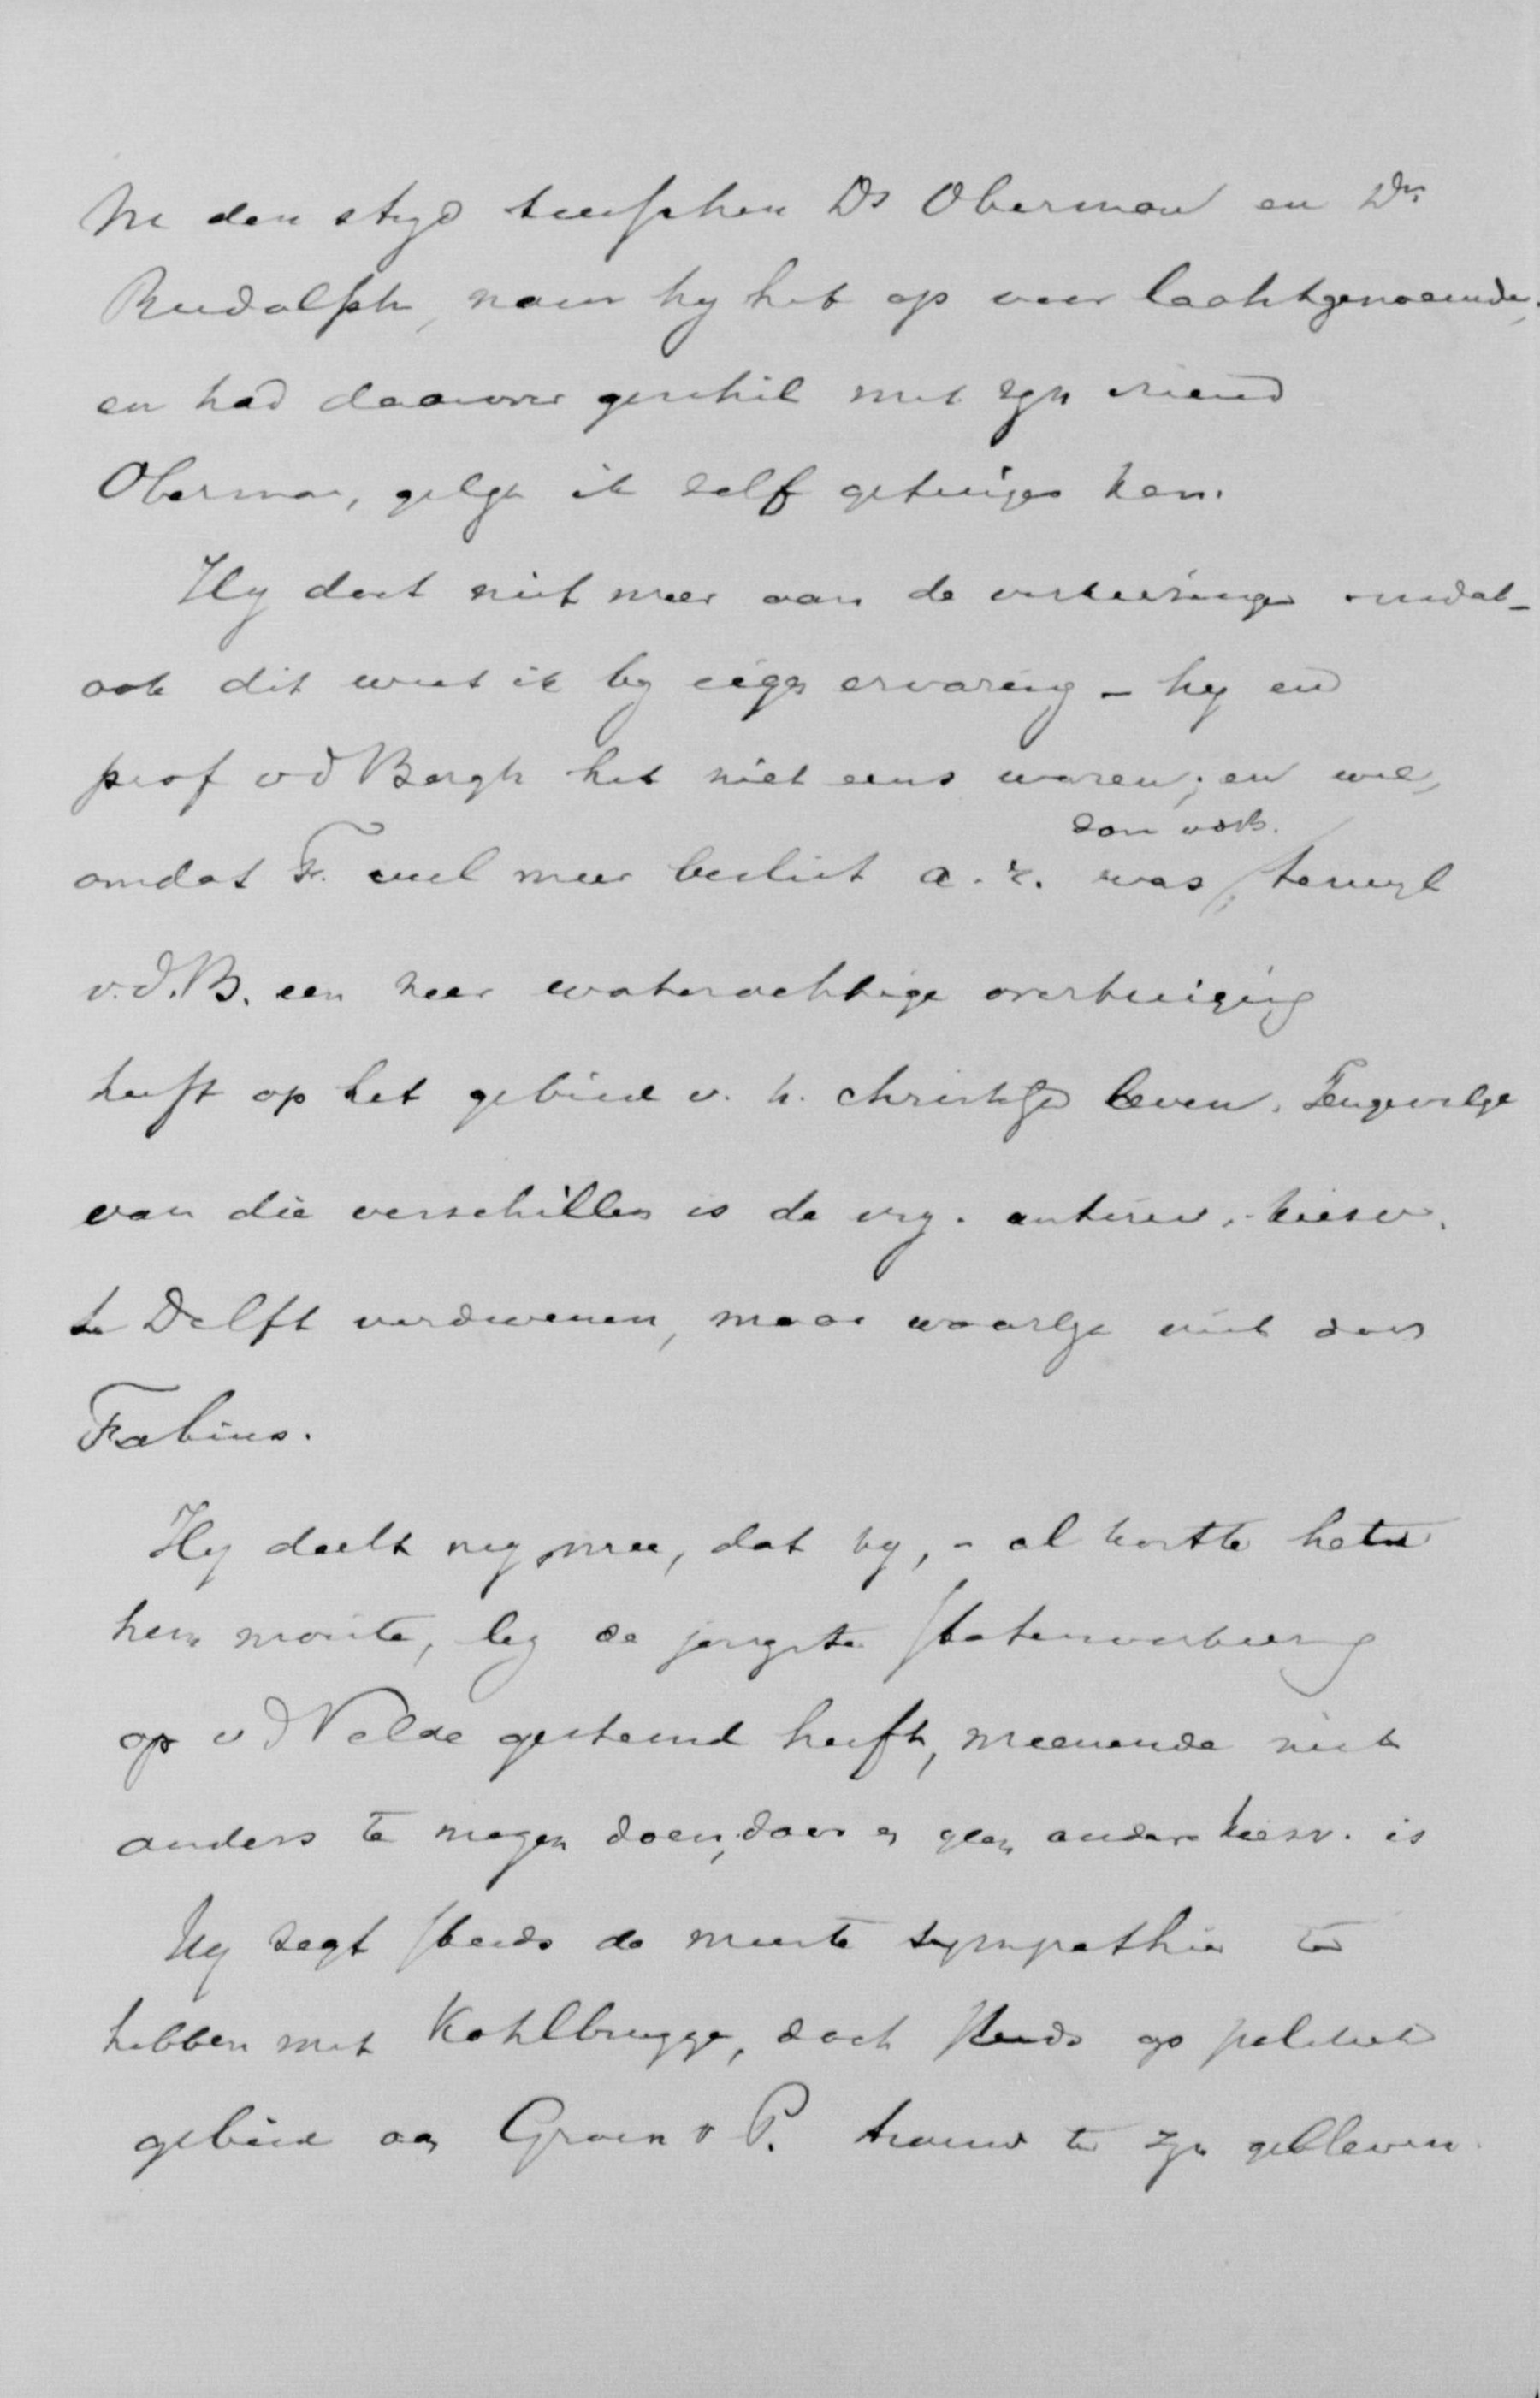 In den stryd tusschen Ds Oberman en Dr
Rudolph, nam hy het op voor laatstgenoemde,
en had daarover geschil met zyn vriend
Oberman, gelyk ik zelf getuigen kan.
Hy doet niet meer aan de verkiezingen omdat –
ook dit weet ik by eigen ervaring – hy en
prof v d Bergh het niet eens waren; en wel,
omdat F. veel meer beslist a. r. was dan vdB., terwyl
v.d.B. een zeer waterachtige overtuiging
heeft op het gebied v. h. christelyk leven. Tengevolge
van die verschillen is de vrg. antirev. kiesv.
te Delft verdwenen, maar waarlyk niet door
Fabius.
Hy deelt my mee, dat hy, – al kostte het
hem moeite, by de jongste Statenverkiezing
op v d Velde gestemd heeft, meenende niet
anders te mogen doen, daar er geen andere kiesv. is
Hy zegt steeds de meeste sympathie te
hebben met Kohlbrugge, doch steeds op politiek
gebied aan Groen v P. trouw te zyn gebleven.